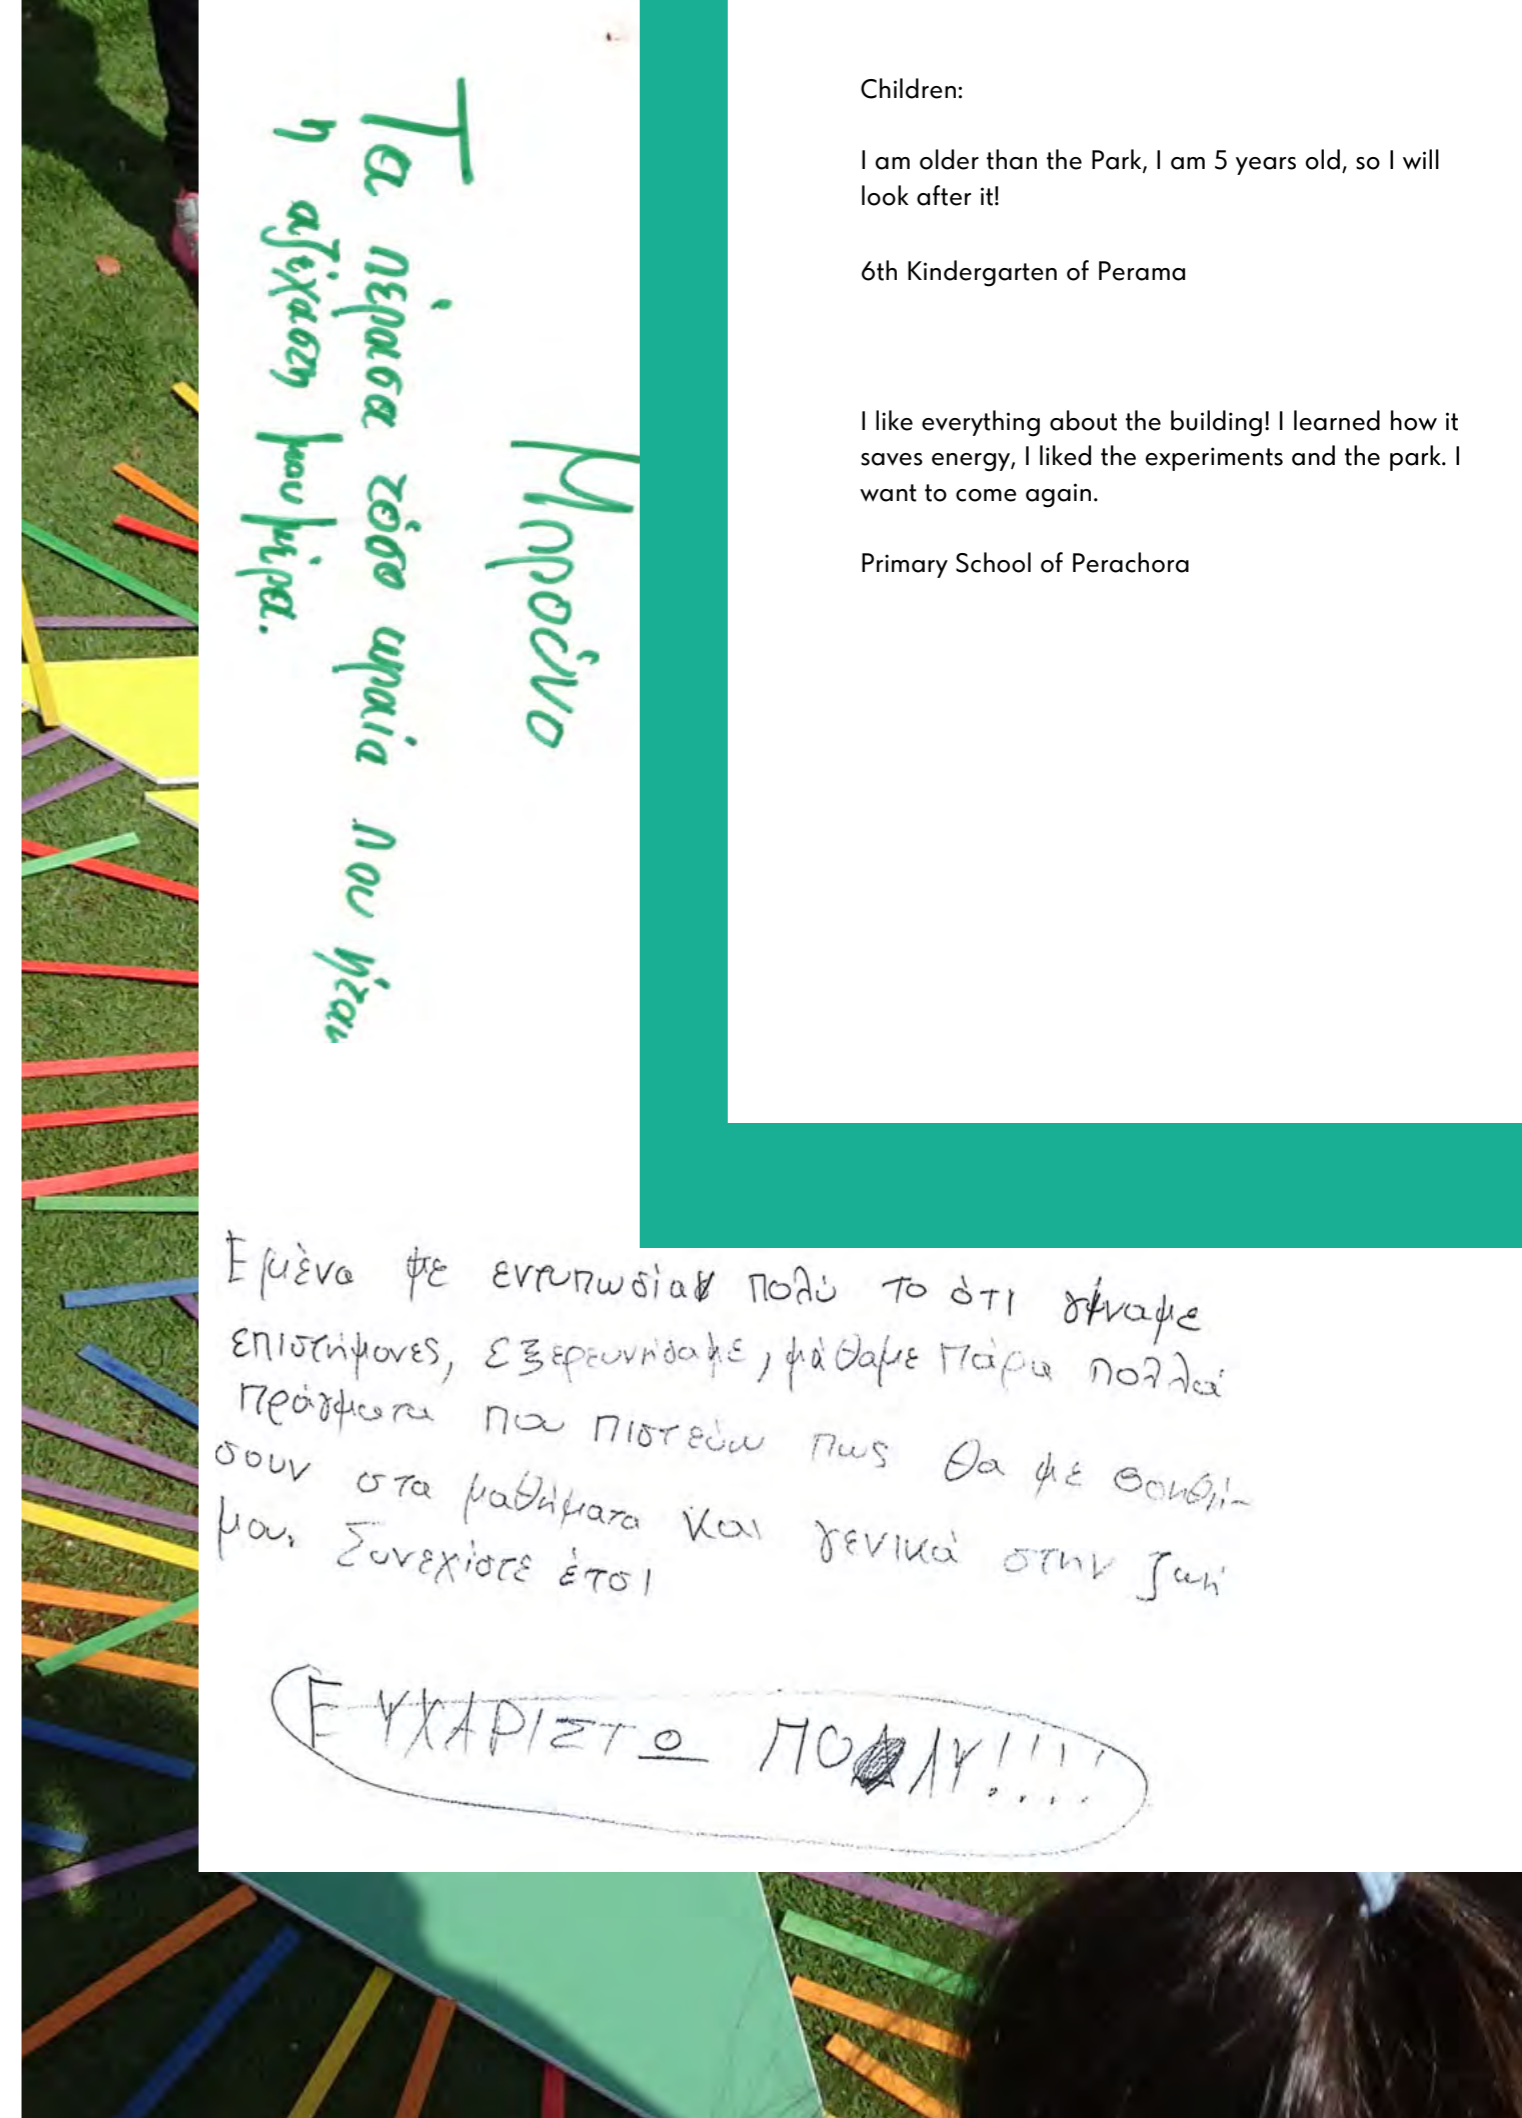 Μπράνο
Τα πέρασα τόσο ωραία που ήταν
η αξέχαστη μου μέρα.
Children:
I am older than the Park, I am 5 years old, so I will
look after it!
6th Kindergarten of Perama
I like everything about the building! I learned how it
saves energy, I liked the experiments and the park. I
want to come again.
Primary School of Perachora
Εμένα με εντυπωσίασ πολύ το ότι γίναμε
επιστήμονες, εξερευνήσαμε, μάθαμε πάρα πολλά
πράγματα που πιστεύω πως θα με βοηθή-
σουν στα μαθήματα και γενικά στην ζωή
μου. Συνεχίστε έτσι
ΕΥΧΑΡΙΣΤΩ ΠΟΛΥ!!!!